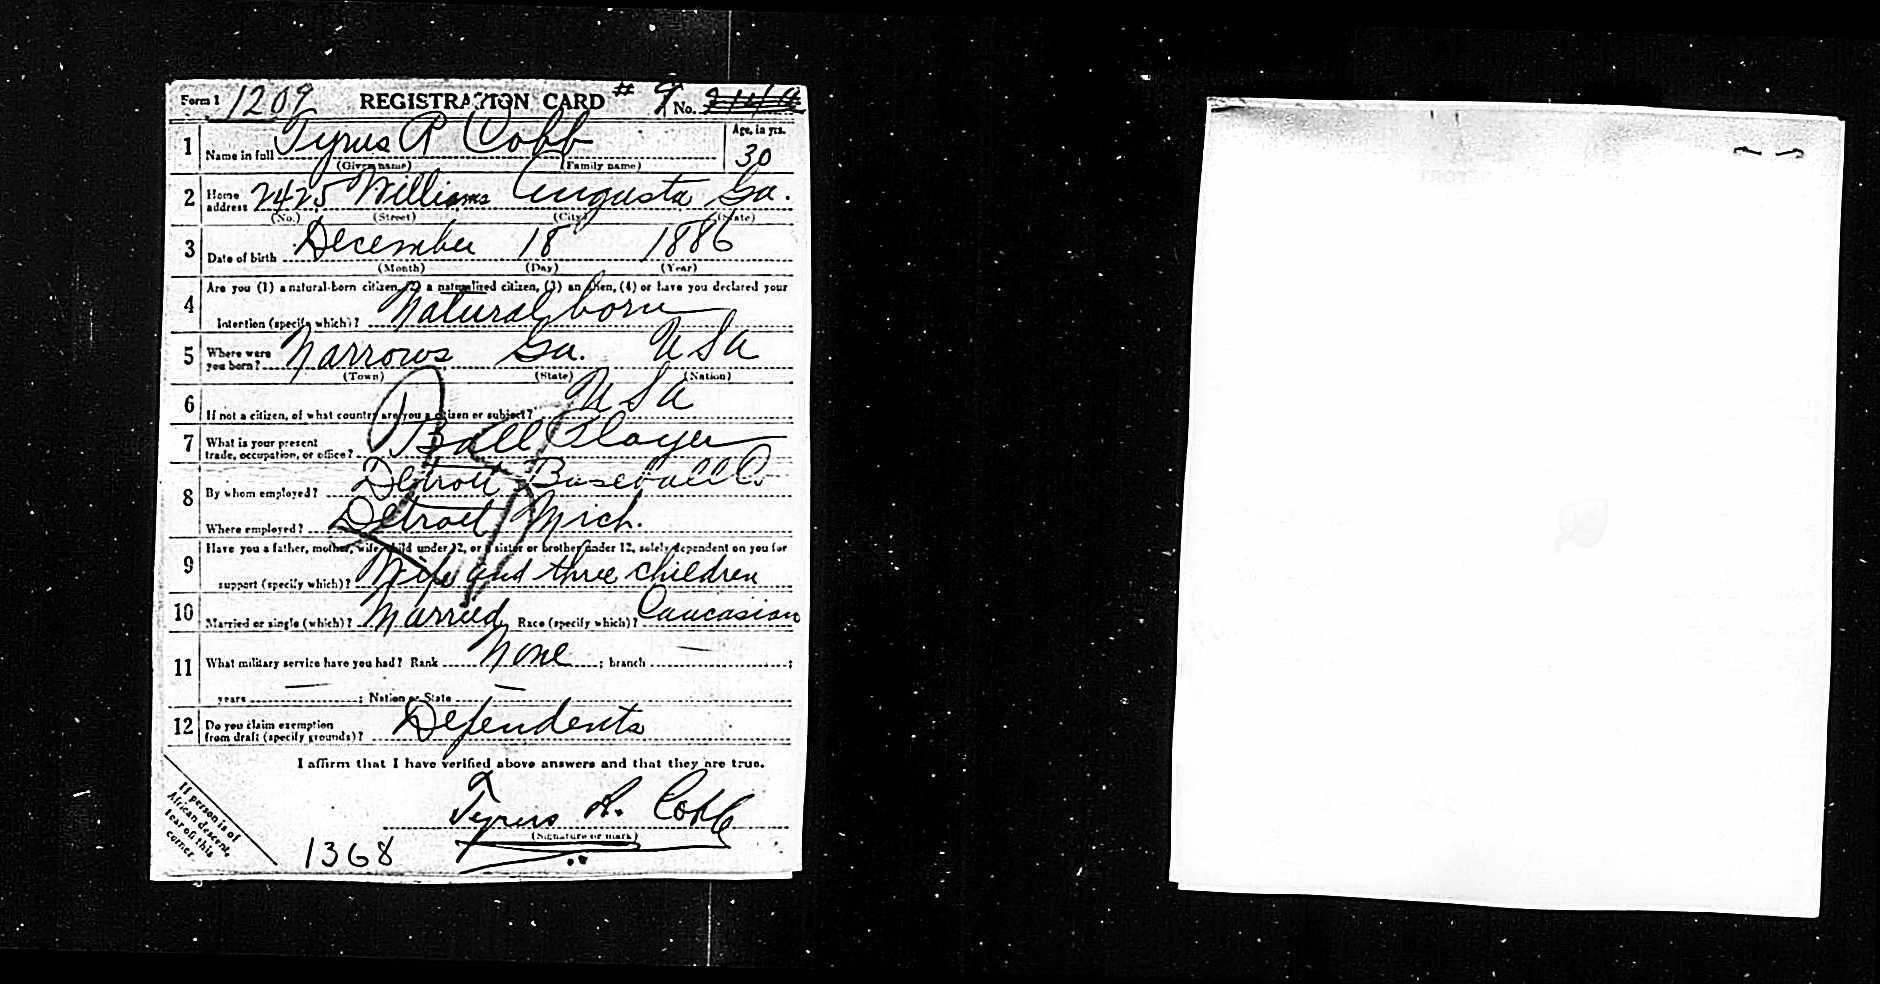 Form 1 1209 REGISTRATION CARD # 9 No.
1 Name in full Tyrus R Cobb Age, in yrs.
(Given name) (Family name) 30
2 Home address 2425 Williams Augusta Ga.
(No.) (Street) (City) (State)
3 Date of birth December 18 1886
(Month) (Day) (Year)
4 Are you (1) a natural-born citizen, (2) a naturalized citizen, (3) an alien, (4) or have you declared your
intention (specify which)? Natural born
5 Where were you born? Narrows Ga. USA
(Town) (State) (Nation)
6 If not a citizen, of what country are you a citizen or subject? USA
7 What is your present trade, occupation, or office? Ball Player
8 By whom employed? Detroit Baseball Co
Where employed? Detroit Mich.
9 Have you a father, mother, wife, child under 12, or a sister or brother under 12, solely dependent on you for
support (specify which)? Wife and three children
10 Married or single (which)? Married Race (specify which)? Caucasian
11 What military service have you had? Rank None ; branch ;
years ; Nation or State
12 Do you claim exemption from draft (specify grounds)? Dependents
I affirm that I have verified above answers and that they are true.
Tyrus R. Cobb
(Signature or mark)
If person is of
African descent,
tear off this
corner.
1368